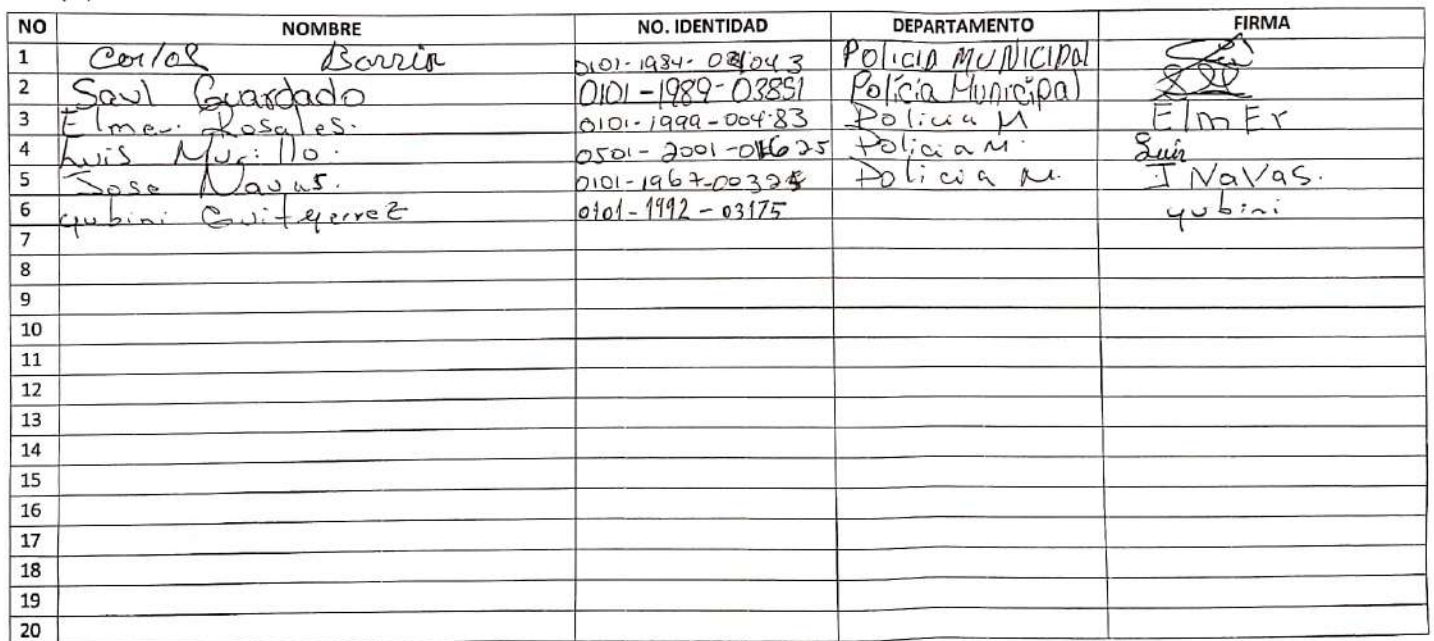 NO NOMBRE NO. IDENTIDAD DEPARTAMENTO FIRMA
1 Carlos Policia MUNICIPAL
2 Saul Guardado 0101-1989-03851 Policía Municipal
3 Elmer. Rosales. 0101-1999-00483 Policia M ElmEr
4 Luis Murillo. 0501-2001- Policia M. Luis
5 Jose Navas. Policia M. J NaVas.
6 yubini 0101-1992-03175 yubini
7
8
9
10
11
12
13
14
15
16
17
18
19
20